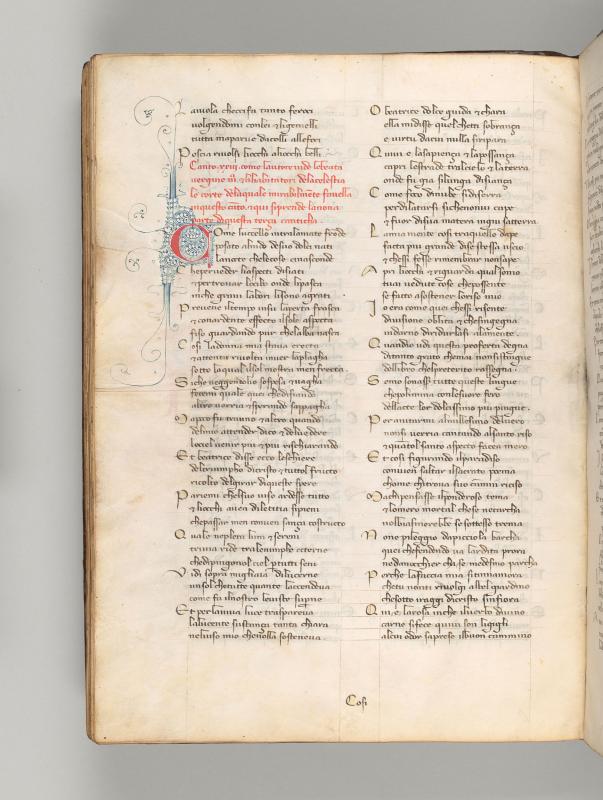 L auiola checcifa tanto feroci
uolgendomi conlei eligemelli
tutta maparue dacolli allefoci
P oscia riuolsi liocchi aliocchi belli
Canto xxiij como lautore uide lebeata
uergine m̄ & lihabitatori delacelestia
le corte delaquale mirabilmẽte fauella
inquesto cãto. & qui siprende lanona
parte diquesta terça canticha
C ome luccello intralamate frõde
posato alnido desuo dolci nati
lanocte chelecose cinasconde
C heperueder liaspecti disiati
& pertrouar locibo onde lipasca
inche graui labor lisono agrati
P reuene iltempo insu laperta frasca
& conardente effecto ilsole aspecta
fiso guardando pur chelalba nasca
C osi ladonna mia staua erecta
& attenta riuolta inuer laplagha
sotto laqual ilsol mostra men frecta
S iche ueggendola sospesa & uagha
fecemi quale quei chedisiando
altro uorria & sperando sappagha
M a poco fu trauno & altro quando
delmio attender dico & deluedere
lociel uenir piu & piu rischiarando
E t beatrice disse ecco leschiere
deltriumpho dicristo & tuttol fructo
ricolto delgirar diqueste spere
P ariemi chelsuo uiso ardesse tutto
& liocchi auea diletitia sipieni
chepassar men conuen sança costructo
Q uale neplenilunii & sereni
triuia ride tralenimphe ecterne
chedipingonol ciel ptutti seni
V idi sopra migliaia dilucerne
unsol chetutte quante laccendeua
come fa ilnostro leuiste supne
E t perlauiua luce trasparea
lalucente sustança tanta chiara
neluiso mio chenolla sosteneua
O beatrice dolce guida & chara
ella midisse quel cheti sobrança
e uirtu dacui nulla siripara
Q uiui e lasapiença & lapossança
capri lestrade tralcielo & laterra
onde fu gia silunga disiança
C ome foco dinube sidiserra
perdilatarsi sichenonui cape
& fuor disua natura ingiu satterra
L amia mente cosi tra quelle dape
facta piu grande dise stessa uscio
& chessi fesse rimembrar nonsape
A pri liocchi & riguarda qual sonio
tuai uedute cose chepossente
se facto asostener loriso mio
I o era come quei chessi risente
diuisione oblita & chesingegna
indarno diridurlasi alamente
Q uandio udi questa proferta degna
ditanto grato chemai nonsistingue
dellibro chelpreterito rassegna
S emo sonasser tutte queste lingue
chepolimnia conlesuore fero
dellacte lor dolcissimo piu pingue
P er aiutarmi almillesimo deluero
nonsi uerria cantando alsanto riso
& quantol santo aspecto facea mero
E t cosi figurando ilparadiso
conuien saltar ilsacrato poema
chome chitroua suo camin riciso
M a chipensasse ilponderoso tema
& lomero mortal chese necarcha
nolbiasmerebbe sesottesso trema
N one pileggio dapicciola barcha
quei chefendendo ua lardita prora
nedanocchier chase medesmo parcha
P erche lafaccia mia sitinnamora
chetu nonti riuolgi albel giardino
chesotto iraggi dicristo sinfiora
Q uiui e larosa inche iluerbo diuino
carne sifece quiui son ligigli
alcui odor saprese ilbuon cammino
Cosi